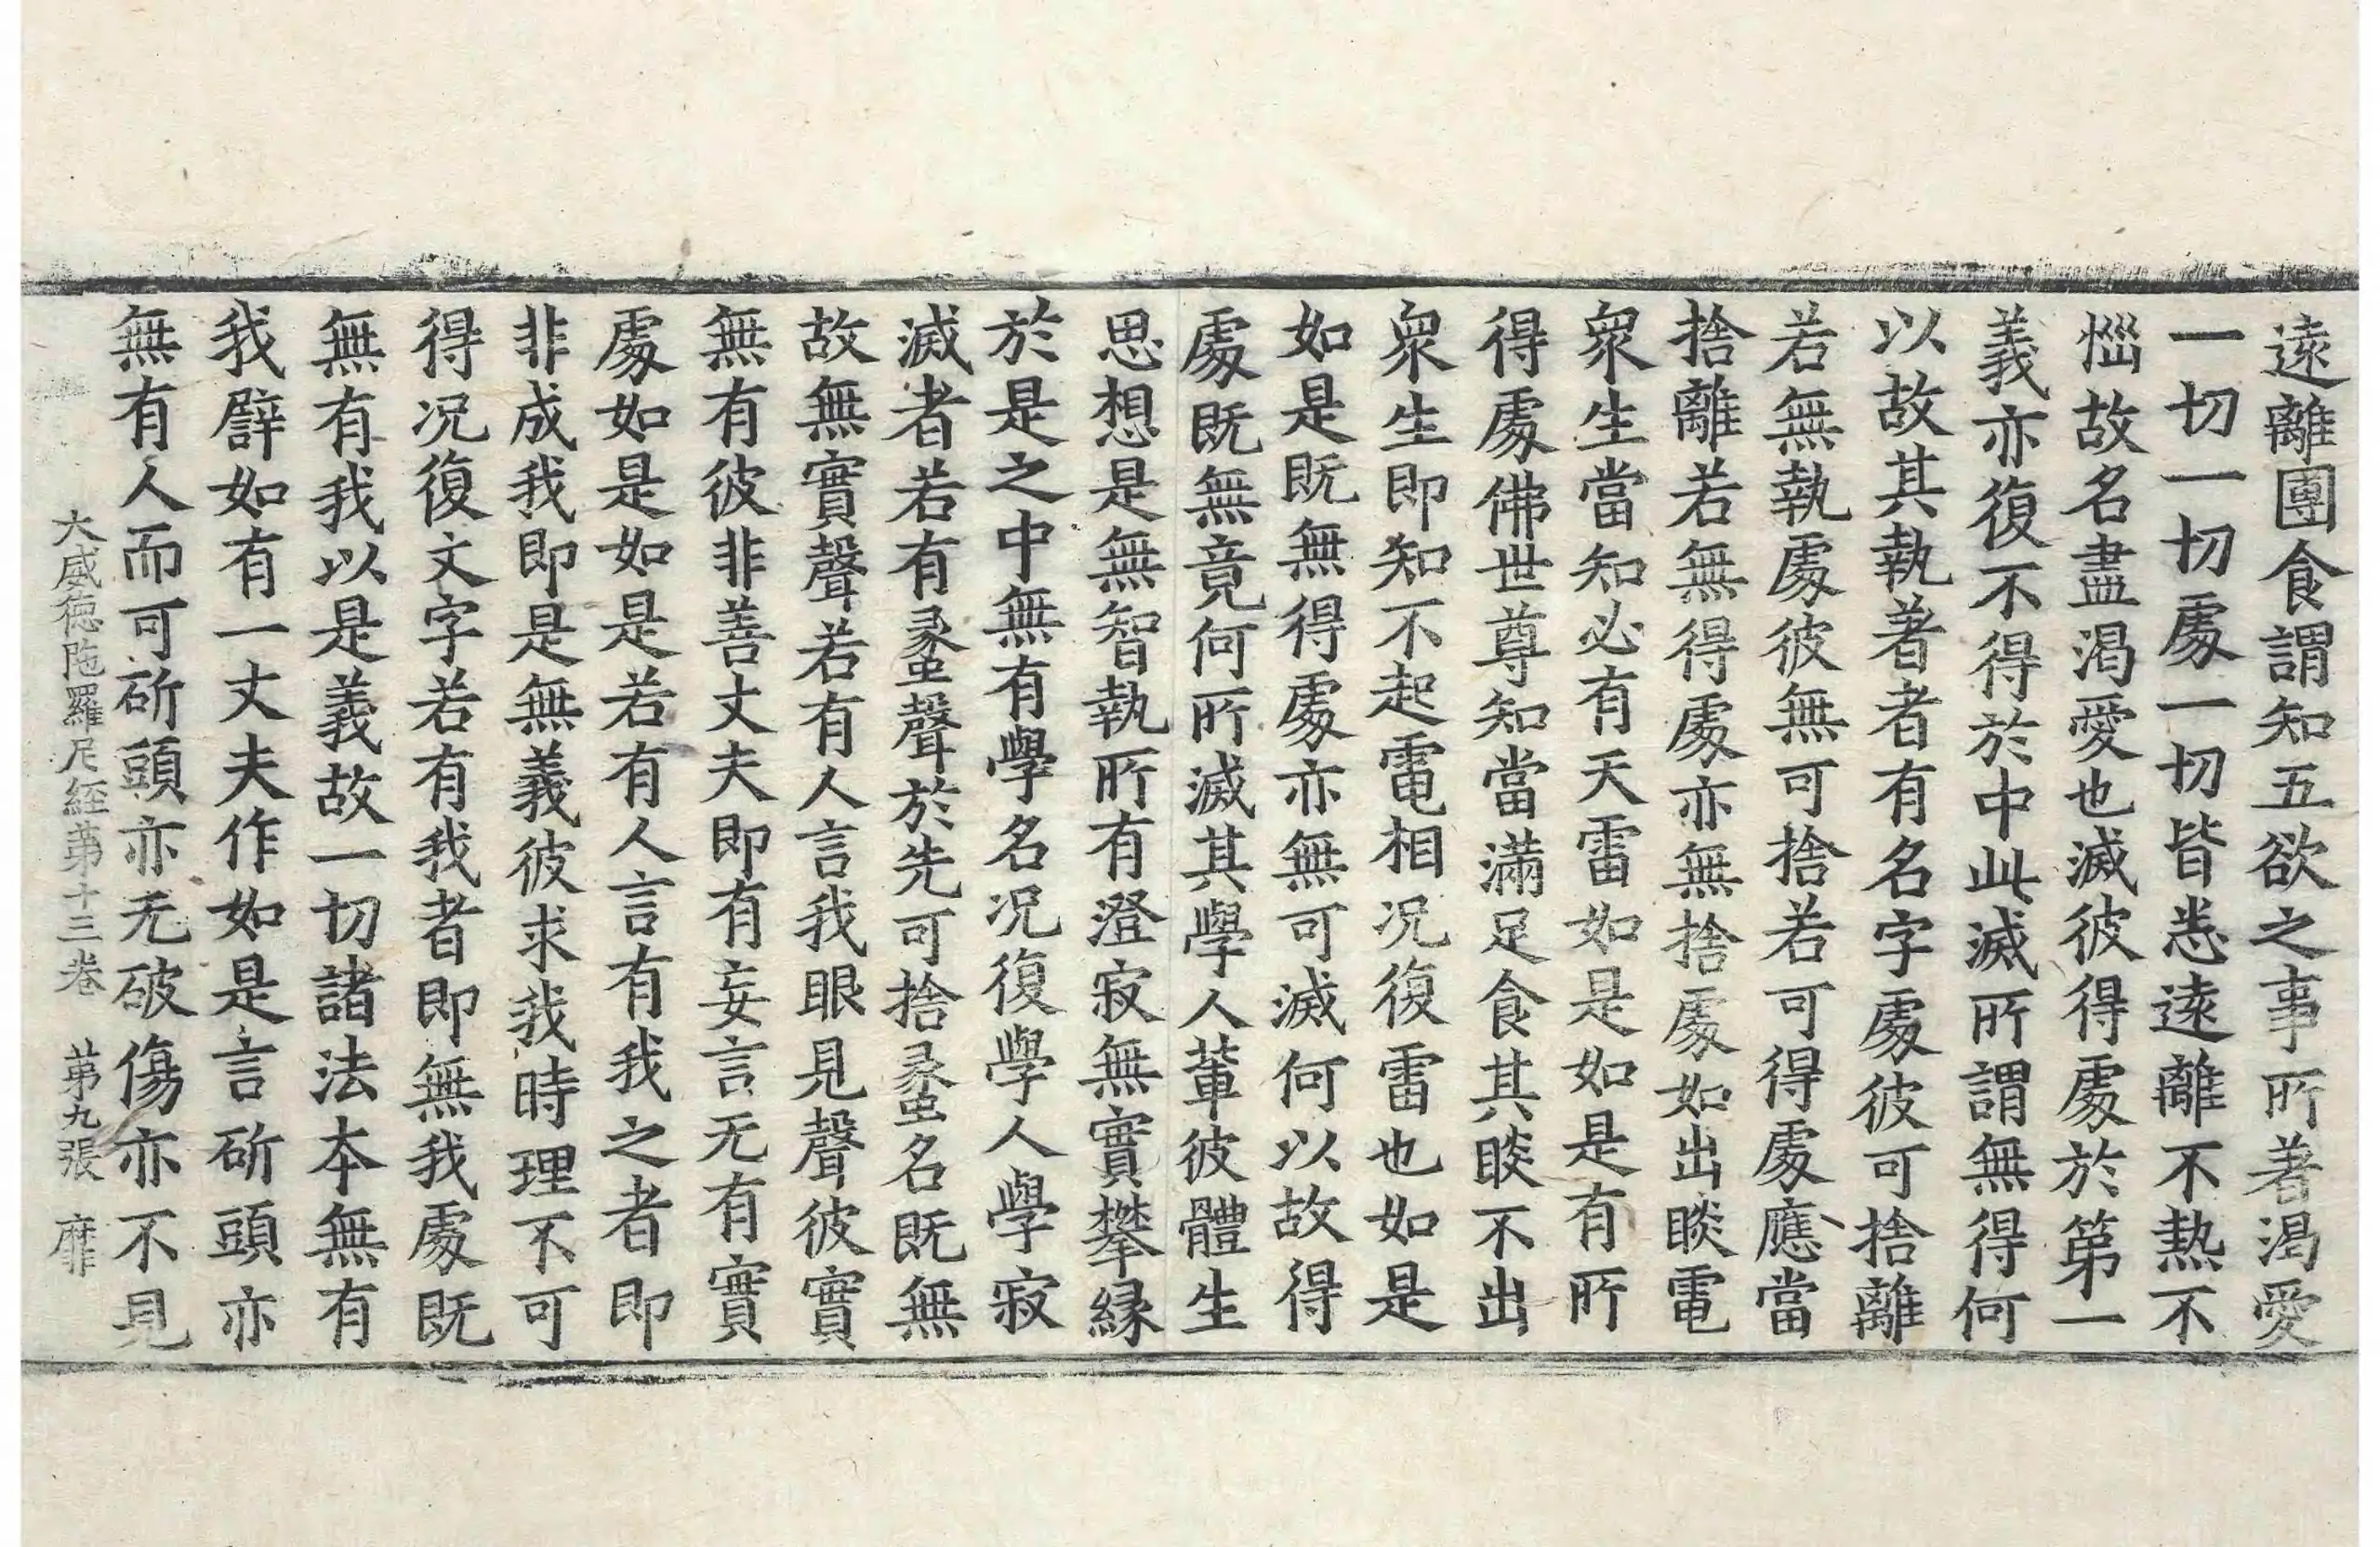 遠離團食謂知五欲之事所著渴愛
一切一切處一切皆悉遠離不熱不
惱故名盡渴愛也滅彼得處於第一
義亦復不得於中此滅所謂無得何
以故其執著者有名字處彼可捨離
若無執處彼無可捨若可得處應當
捨離若無得處亦無捨處如出睒電
衆生當知必有天雷如是如是有所
得處佛世尊知當滿足食其睒不出
衆生即知不起電相况復雷也如是
如是既無得處亦無可滅何以故得
處既無竟何所滅其學人輩彼體生
思想是無智執所有澄寂無實攀緣
於是之中無有學名况復學人學寂
滅者若有䗍聲於先可捨䗍名既無
故無實聲若有人言我眼見聲彼實
無有彼非善丈夫即有妄言无有實
處如是如是若有人言有我之者即
非成我即是無義彼求我時理不可
得况復文字若有我者即無我處既
無有我以是義故一切諸法本無有
我譬如有一丈夫作如是言斫頭亦
無有人而可斫頭亦无破傷亦不見
大威德陁羅尼經第十三卷 第九張 靡